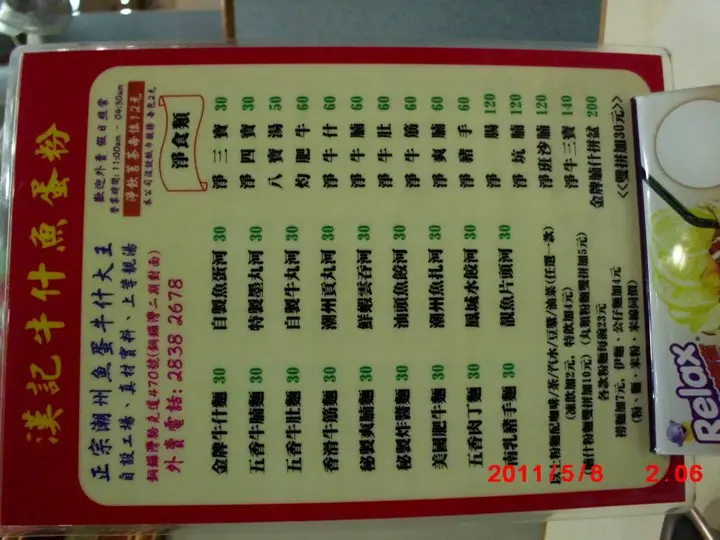 漢記牛什魚蛋粉
正宗潮州魚蛋牛什大王
自設工場、真材實料、上等靚湯
銅鑼灣駱克道470號(銅鑼灣二期對面)
外賣電話: 2838 2678
歡迎外賣 假日照常
營業時間: 11:00am - 04:30am
淨飲茗茶每位12元
本公司沒設紙巾服務 每包2元
淨食類
金牌牛什麵 30
五香牛腩麵 30
五香牛肚麵 30
香滑牛筋麵 30
秘製爽腩麵 30
秘製炸醬麵 30
美國肥牛麵 30
五香肉丁麵 30
南乳豬手麵 30
自製魚蛋河 30
特製墨丸河 30
自製牛丸河 30
潮州貢丸河 30
鮮蝦雲吞河 30
汕頭魚餃河 30
潮州魚扎河 30
鳳城水餃河 30
靚魚片頭河 30
淨三寶 30
淨四寶 30
八寶湯 50
灼肥牛 60
淨牛什 60
淨牛腩 60
淨牛肚 60
淨牛筋 60
淨爽腩 60
淨豬手 60
淨腸 120
淨坑腩 120
淨班沙腩 120
淨牛三寶 140
金牌腩什拼盆 200
<<雙拼加30元>>
粉麵配咖啡/茶/汽水/豆漿/油菜(任選一款)
(凍飲加2元, 特飲加4元)
腩什粉麵雙拼加10元)(丸類粉麵雙拼加5元)
各款粉麵伺碗23元
撈麵加7元, 伊麵、公仔麵加4元
(粉、麵、米粉、米線同價)
Relax
2011/5/8 2:06